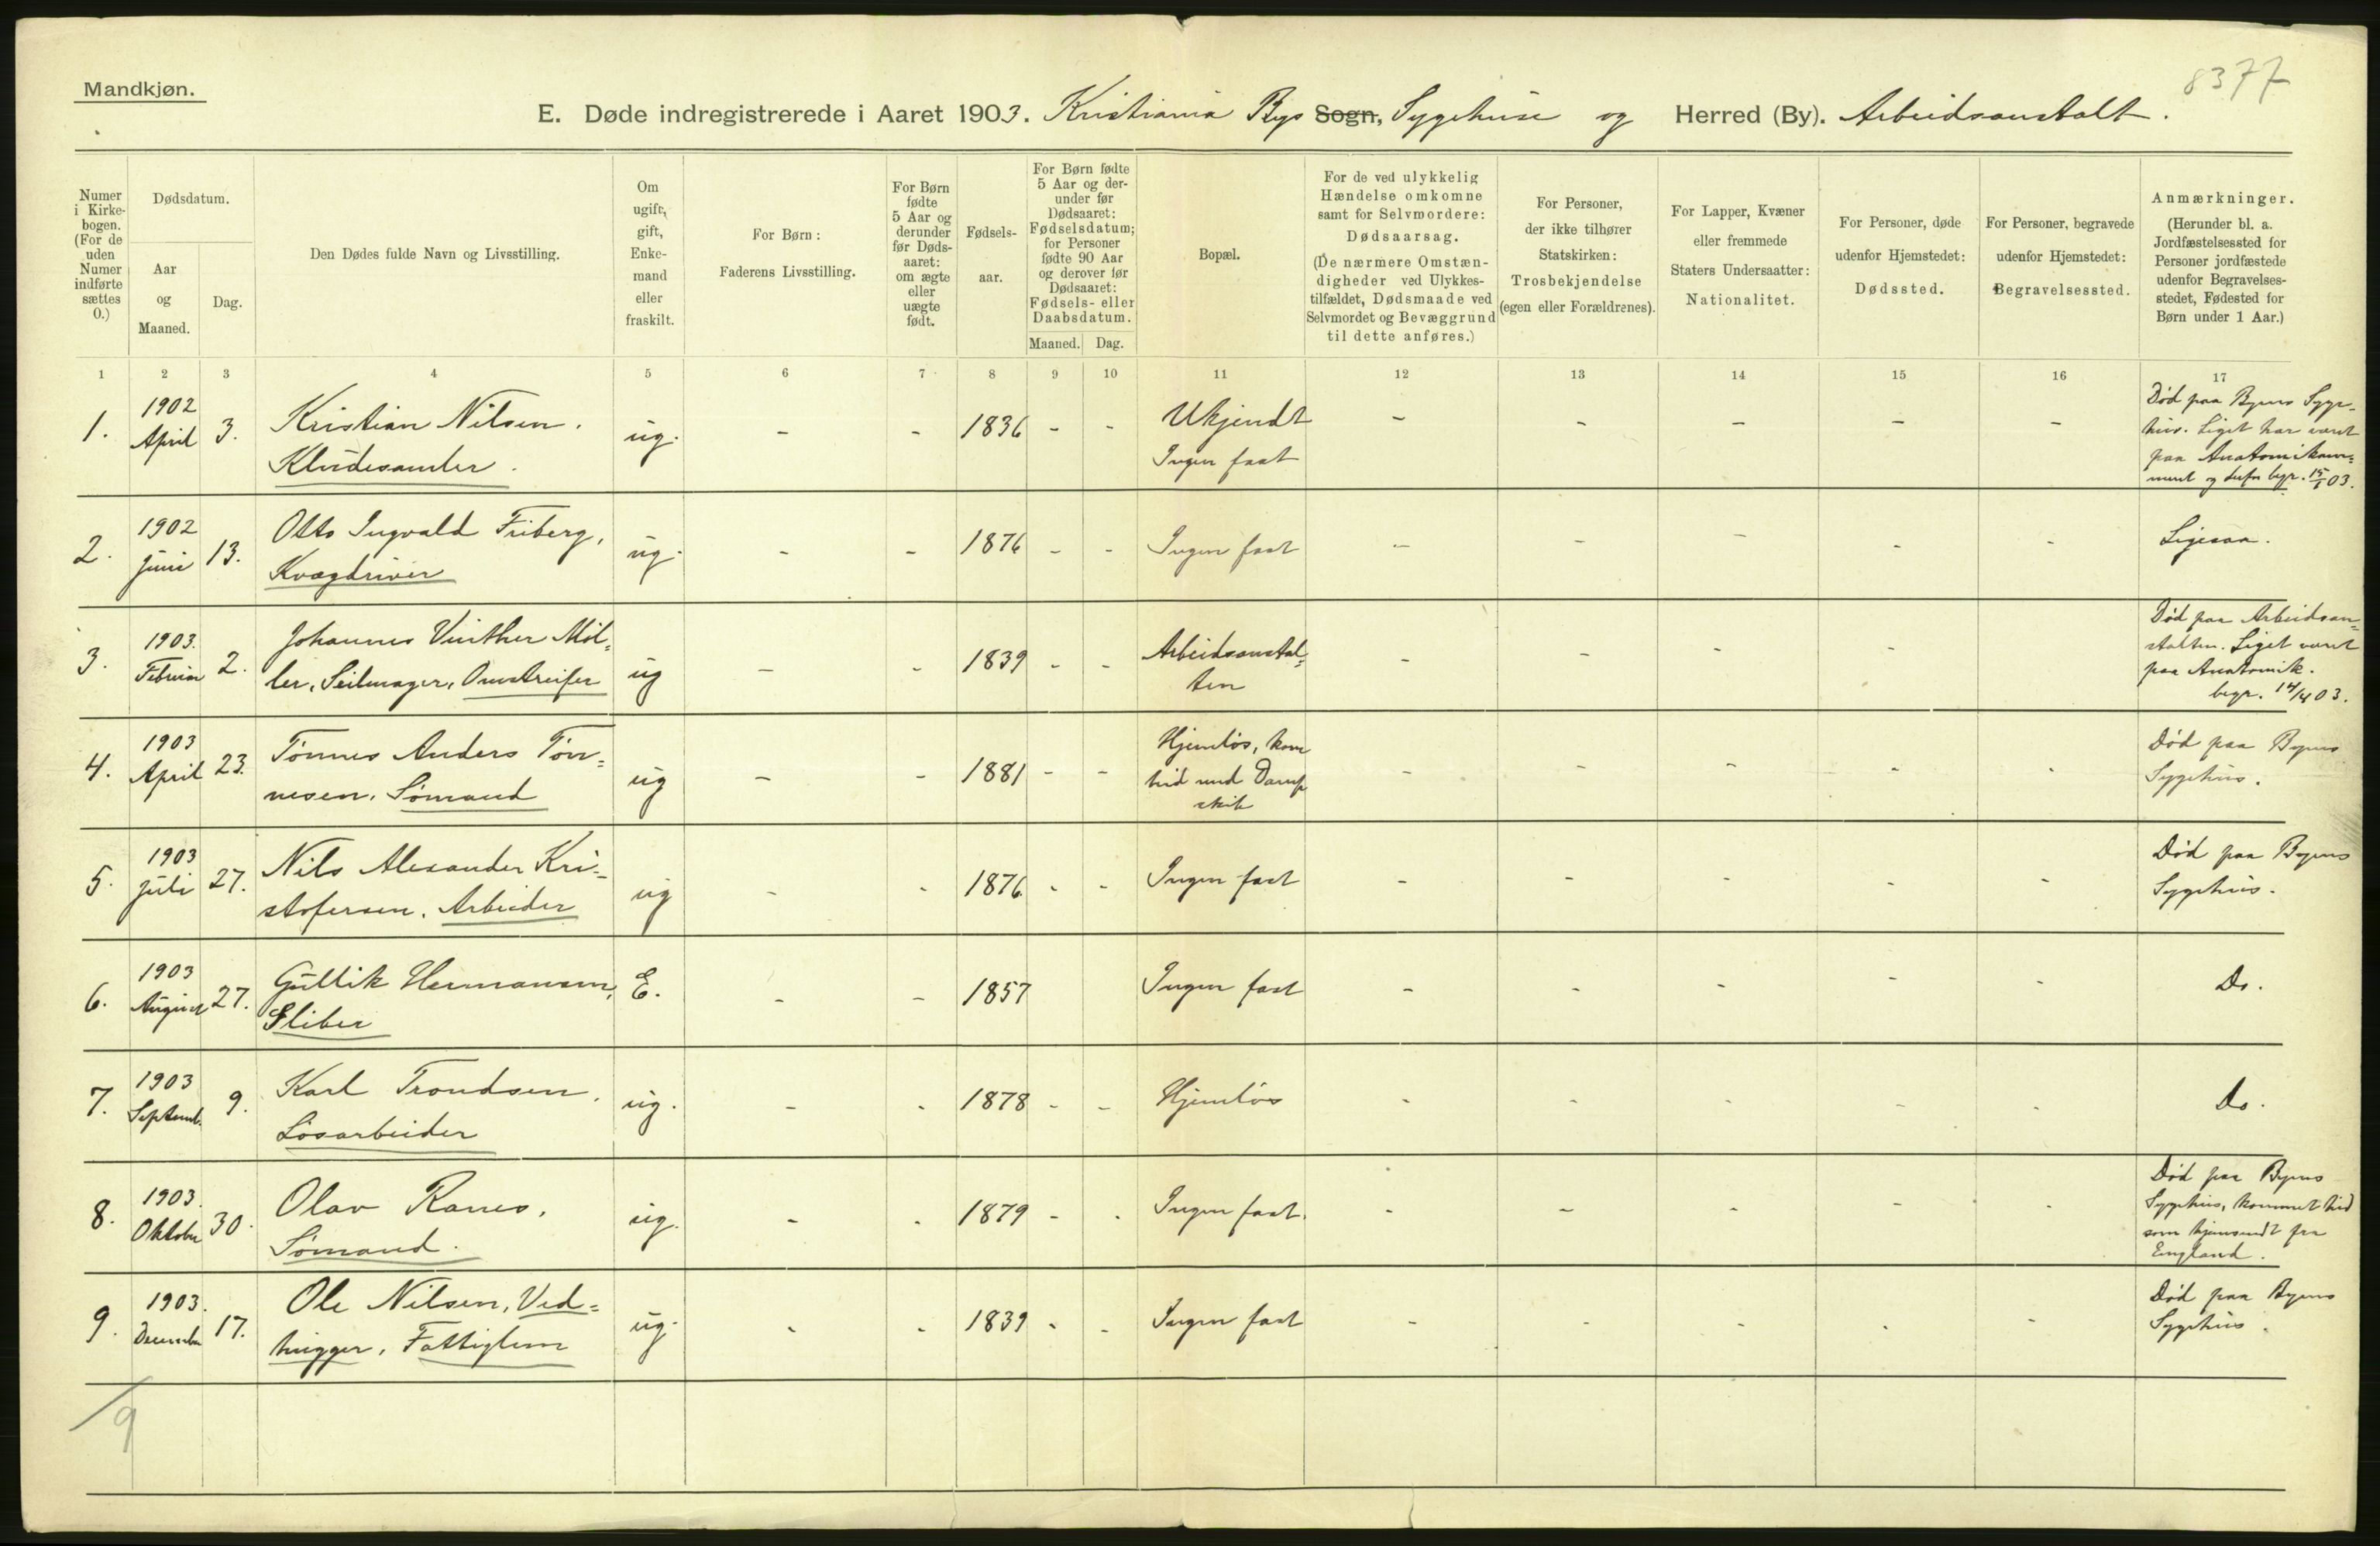 Mandkjøn.
8377
E. Døde indregistrerede i Aaret 1903. Kristiania Bys Sogn, Sygehuse og Herred (By). Arbeidsanstalt.
Numer i Kirkebogen. (For de uden Numer indførte sættes 0.)
Dødsdatum.
Aar og Maaned.
Dag.
Den Dødes fulde Navn og Livsstilling.
Om ugift, gift, Enkemand eller fraskilt.
For Børn: Faderens Livsstilling.
For Børn fødte 5 Aar og derunder før Dødsaaret: om ægte eller uægte født.
Fødselsaar.
For Børn fødte 5 Aar og derunder før Dødsaaret: Fødselsdatum; for Personer fødte 90 Aar og derover før Dødsaaret: Fødsels- eller Daabsdatum.
Maaned. Dag.
Bopæl.
For de ved ulykkelig Hændelse omkomne samt for Selvmordere: Dødsaarsag. (De nærmere Omstændigheder ved Ulykkestilfældet, Dødsmaade ved Selvmordet og Bevæggrund til dette anføres.)
For Personer, der ikke tilhører Statskirken: Trosbekjendelse (egen eller Forældrenes).
For Lapper, Kvæner eller fremmede Staters Undersaatter: Nationalitet.
For Personer, døde udenfor Hjemstedet: Dødssted.
For Personer, begravede udenfor Hjemstedet: Begravelsessted.
Anmærkninger. (Herunder bl. a. Jordfæstelsessted for Personer jordfæstede udenfor Begravelsesstedet, Fødested for Børn under 1 Aar.)
1 2 3 4 5 6 7 8 9 10 11 12 13 14 15 16 17
1. 1902 April 3. Kristian Nilsen, Kludesamler. ug. - - 1836 - - Ukjendt Ingen fast - - - - - Død paa Byens Sygehus. Liget har været paa Anatomikammeret og derfor begr. 15/1 03.
2. 1902 Juni 13. Otto Ingvald Friberg, Kvægdriver ug. - - 1876 - - Ingen fast - - - - - Ligesaa.
3. 1903. Februar 2. Johannes Vinther Möller, Seilmager, Omstreifer ug - - 1839 - - Arbeidsanstalten - - - - Død paa Arbeidsanstalten. Liget været paa Anatomik. begr. 14/4 03.
4. 1903 April 23. Tönnes Anders Tönnesen, Sömand ug - - 1881 - - Hjemlös, kom hid med Dampskib - - - - - Död paa Byens Sygehus.
5. 1903 Juli 27. Nils Alexander Kristofersen, Arbeider ug - - 1876 - - Ingen fast - - - - - Död paa Byens Sygehus.
6. 1903 August 27. Gullik Hermansen, Sliber E. - - 1857 Ingen fast - - - - - Do.
7. 1903 Septemb. 9. Karl Trondsen, Lösarbeider ug. - - 1878 - - Hjemlös - - - - - Do.
8. 1903. Oktober 30. Olav Ranes, Sömand. ug. - - 1879 - - Ingen fast. - - - - - Död paa Byens Sygehus, kommet hid som hjemsendt fra England.
9. 1903. December 17. Ole Nilsen, Vedhugger, Fattiglem ug. - - 1839 - - Ingen fast - - - - - Död paa Byens Sygehus.
/9